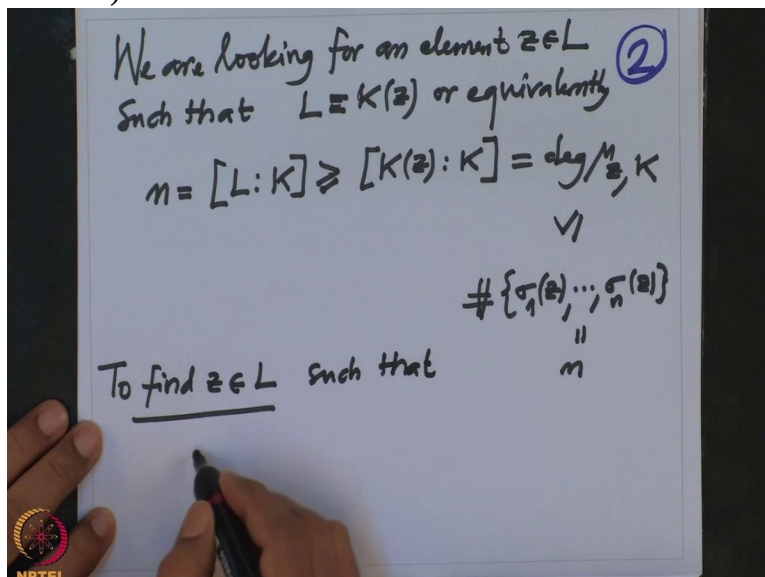 We are looking for an element z ∈ L
2
Such that L = K(z) or equivalently
n = [L : K] ⩾ [K(z) : K] = deg μ_{z, K}
\/|
# {σ_1(z), ..., σ_n(z)}
||
n
To find z ∈ L such that
NPTEL